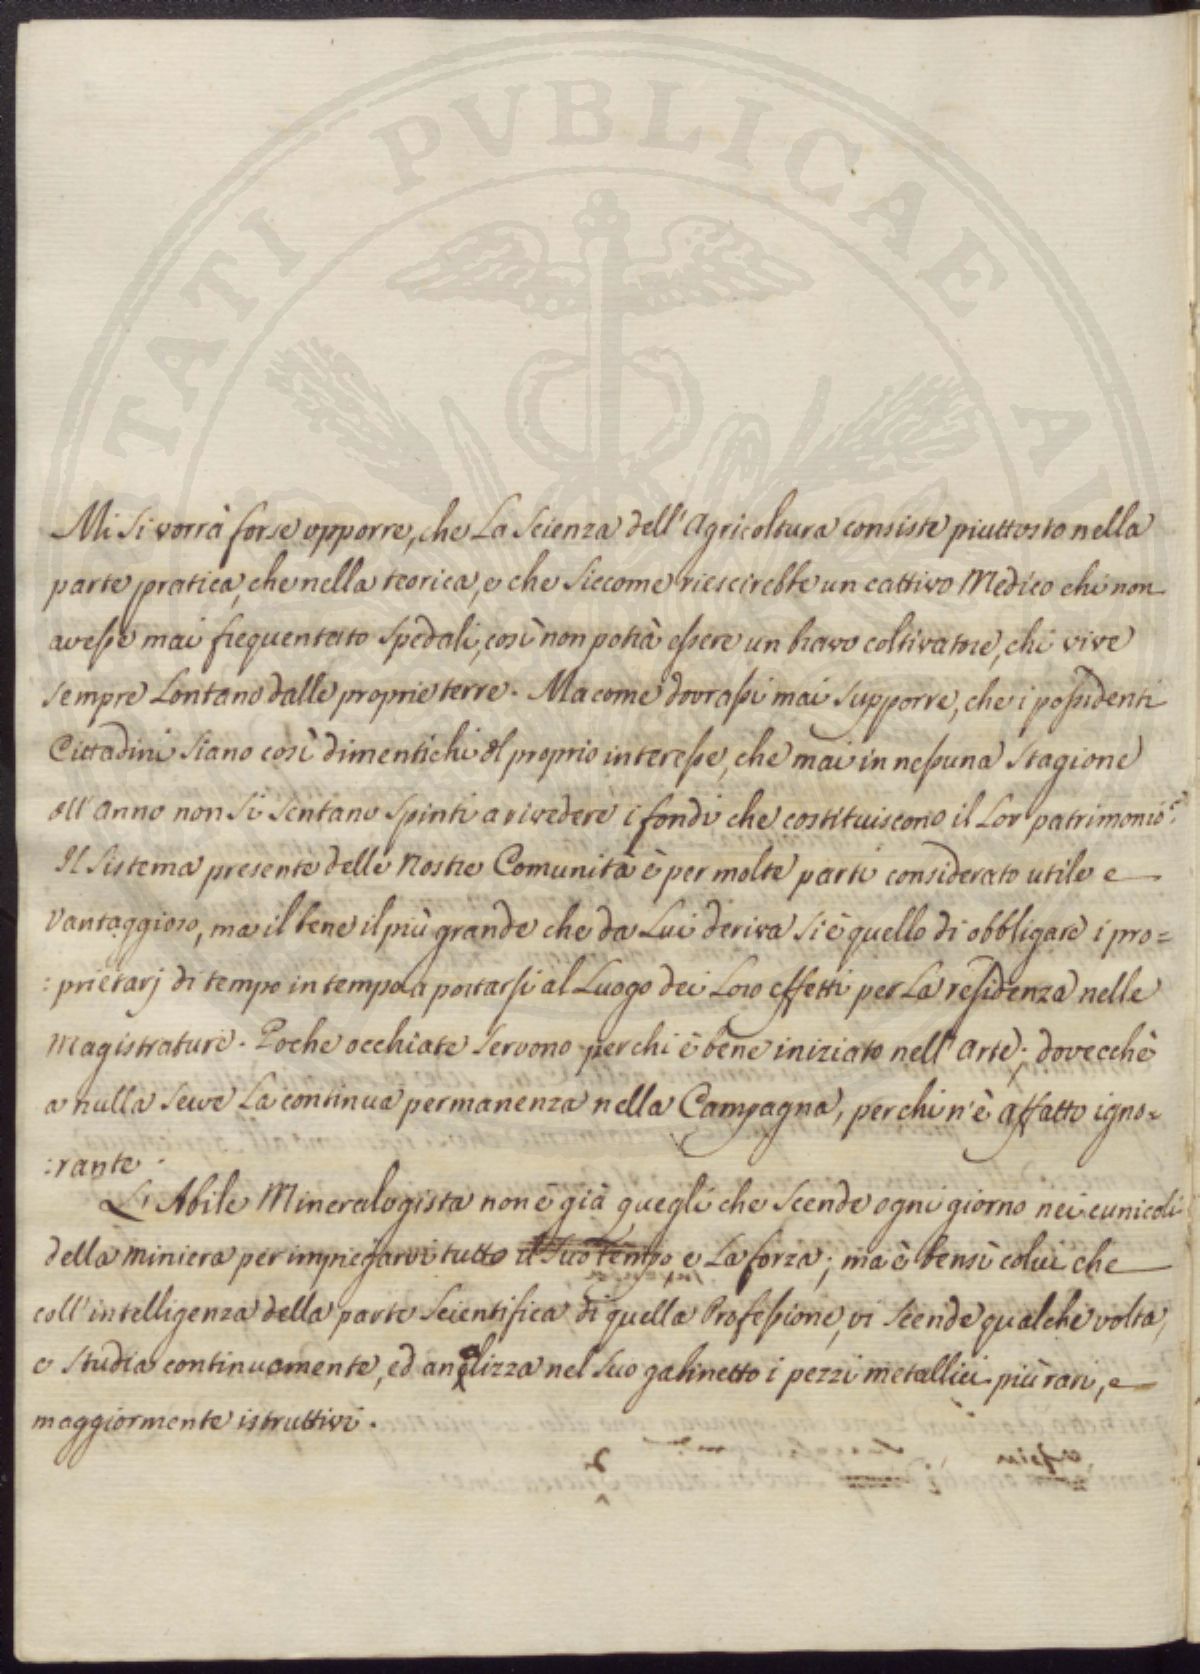 TATI PVBLICAE AV
Mi si vorrà forse opporre, che La Scienza dell'Agricoltura consiste piuttosto nella
parte pratica, che nella teorica, e che siccome riescirebbe un cattivo Medico chi non
avesse mai frequentato Spedali, così non potrà essere un bravo coltivatore, chi vive
sempre Lontano dalle proprie terre. Ma come dovrassi mai supporre, che i possidenti
Cittadini siano così dimentichi del proprio interesse, che mai in nessuna stagione
dell'anno non si sentano spinti a rivedere i fondi che costituiscono il Lor patrimonio?
Il Sistema presente delle nostre Comunità è per molte parti considerato utile e
Vantaggioso, ma il bene il più grande che da Lui deriva si è quello di obbligare i pro=
:prietarj di tempo in tempo a portarsi al Luogo dei Loro effetti per La residenza nelle
Magistrature. Poche occhiate servono per chi è bene iniziato nell'arte; dovecchè
a nulla serve La continua permanenza nella Campagna, per chi n'è affatto igno=
:rante.
L'Abile Mineralogista non è già quegli che scende ogni giorno nei cunicoli
della miniera per impiegarvi tutto il suo tempo e La forza; ma è bensì colui che
coll'intelligenza della parte Scientifica di quella Professione, vi scende qualche volta,
e studia continuamente, ed analizza nel suo gabinetto i pezzi metallici più rari, e
maggiormente istruttivi.